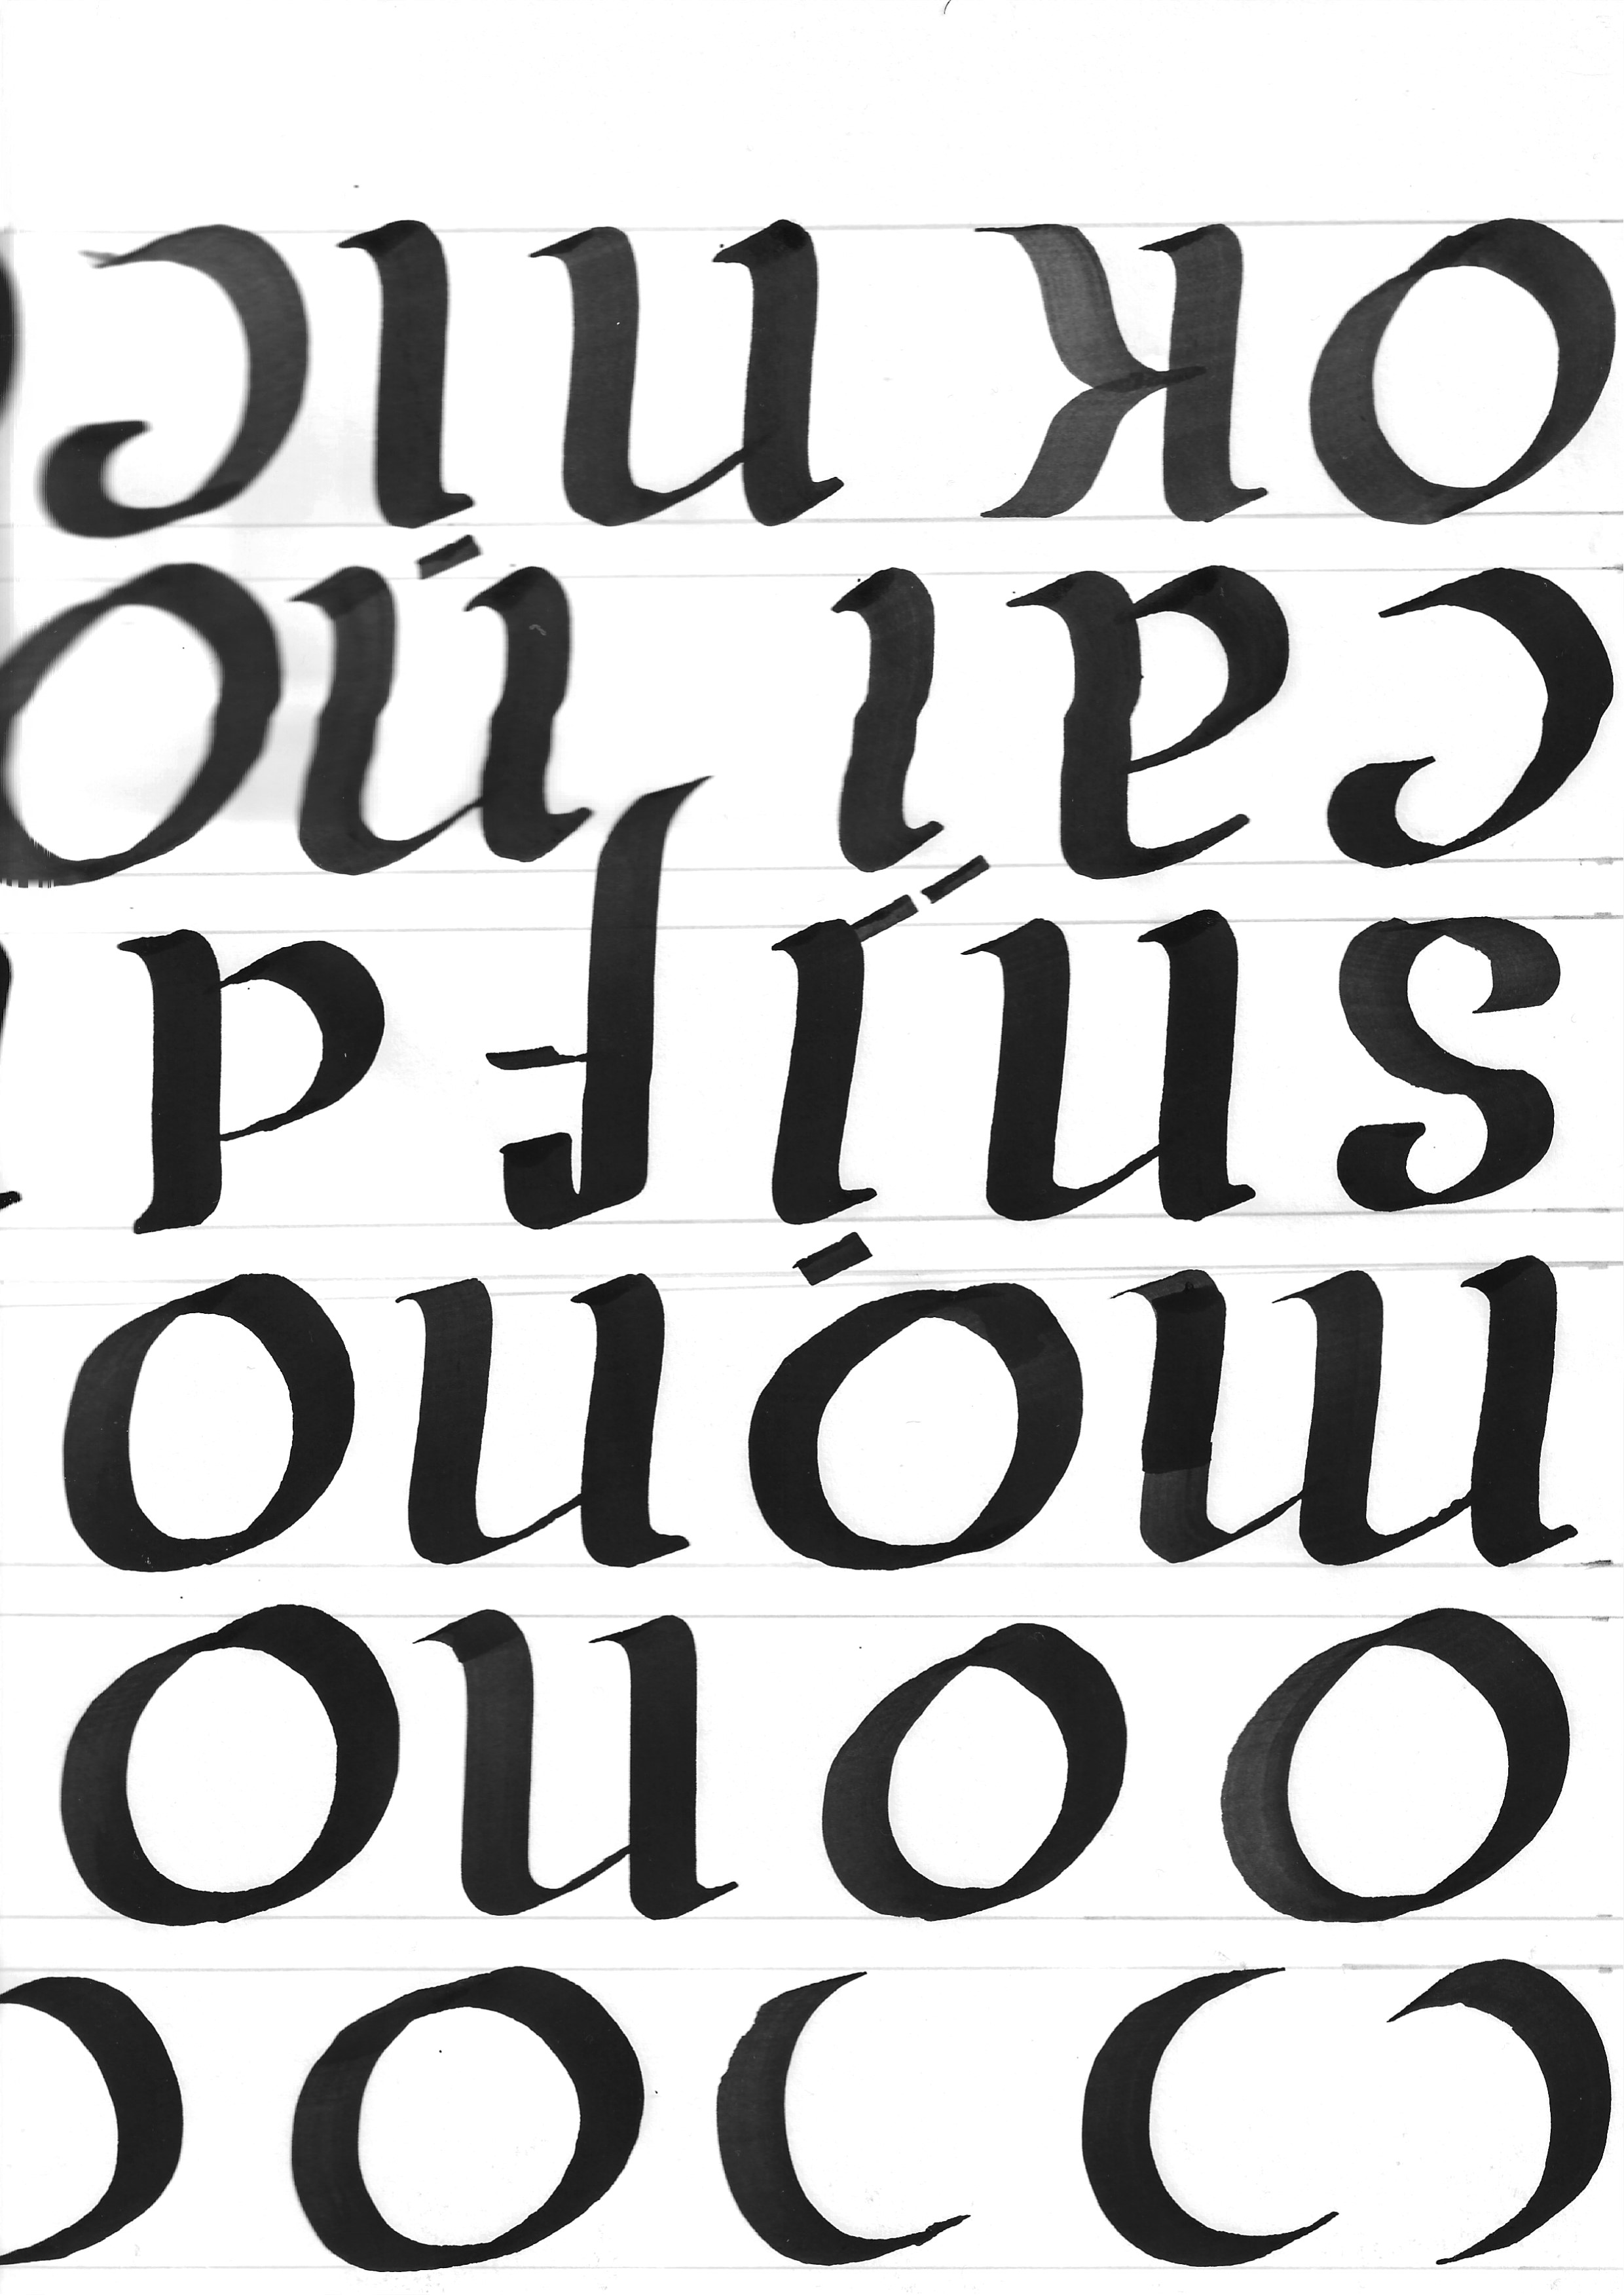 c o o c
o o n o
m o n o
s n i f d
c a i n o
o k n i c